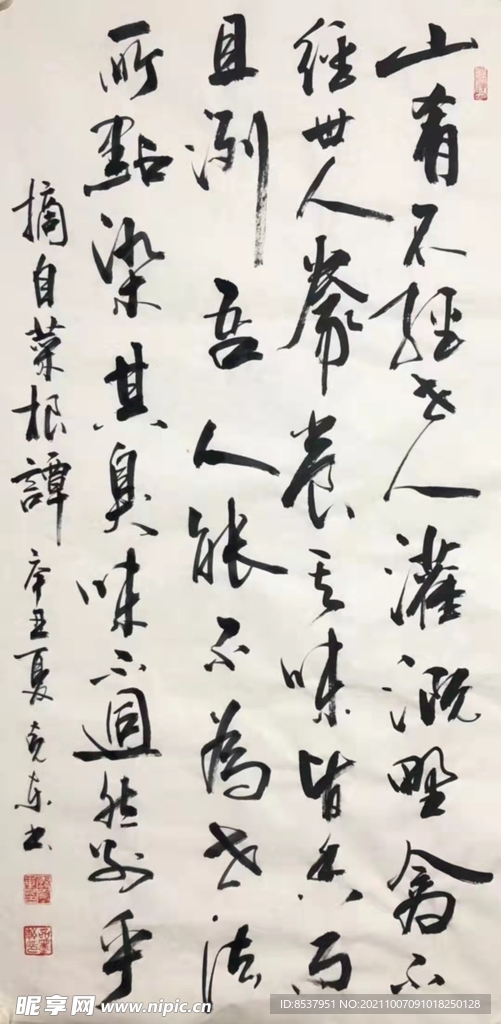 山肴不經世人灌溉野禽不
經世人豢養其味皆香而
且洌吾人能不為世法
所點染其臭味不逈然別乎
摘自菜根譚 辛丑夏 克东书
昵享网 www.nipic.cn
ID:8537951 NO:20211007091018250128